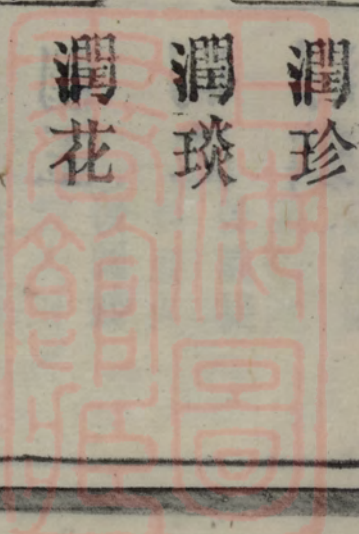 潤珍
潤琰
潤花